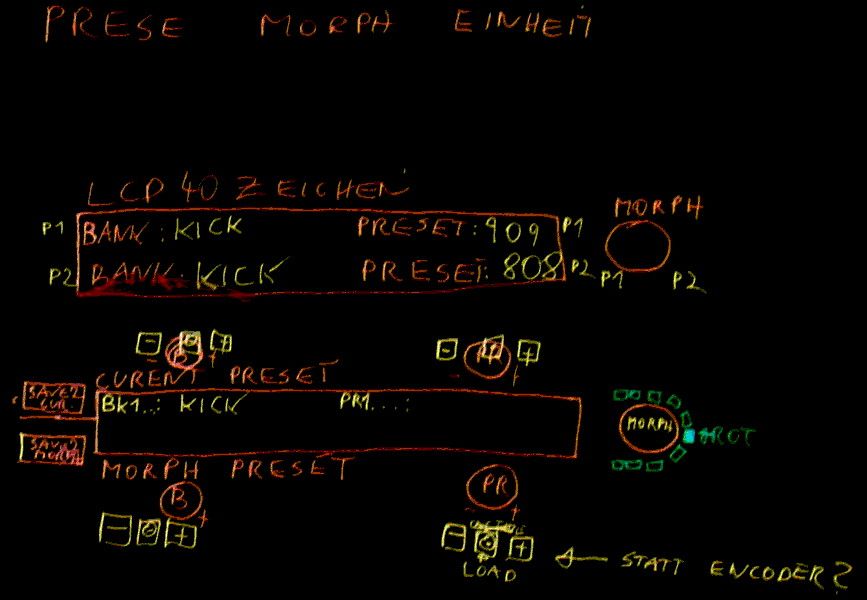 PRESE MORPH EINHEIT
LCD 40 ZEICHEN
MORPH
P1 BANK: KICK PRESET: 909 P1
P2 BANK: KICK PRESET: 808 P2
P1 P2
- +
- +
B
- +
PR
- +
CURENT PRESET
SAVE?
BK1..: KICK PR1....:
MORPH
ROT
SAVE?
MORPH
MORPH PRESET
B
+
PR
- +
- +
- +
LOAD
← STATT ENCODER?